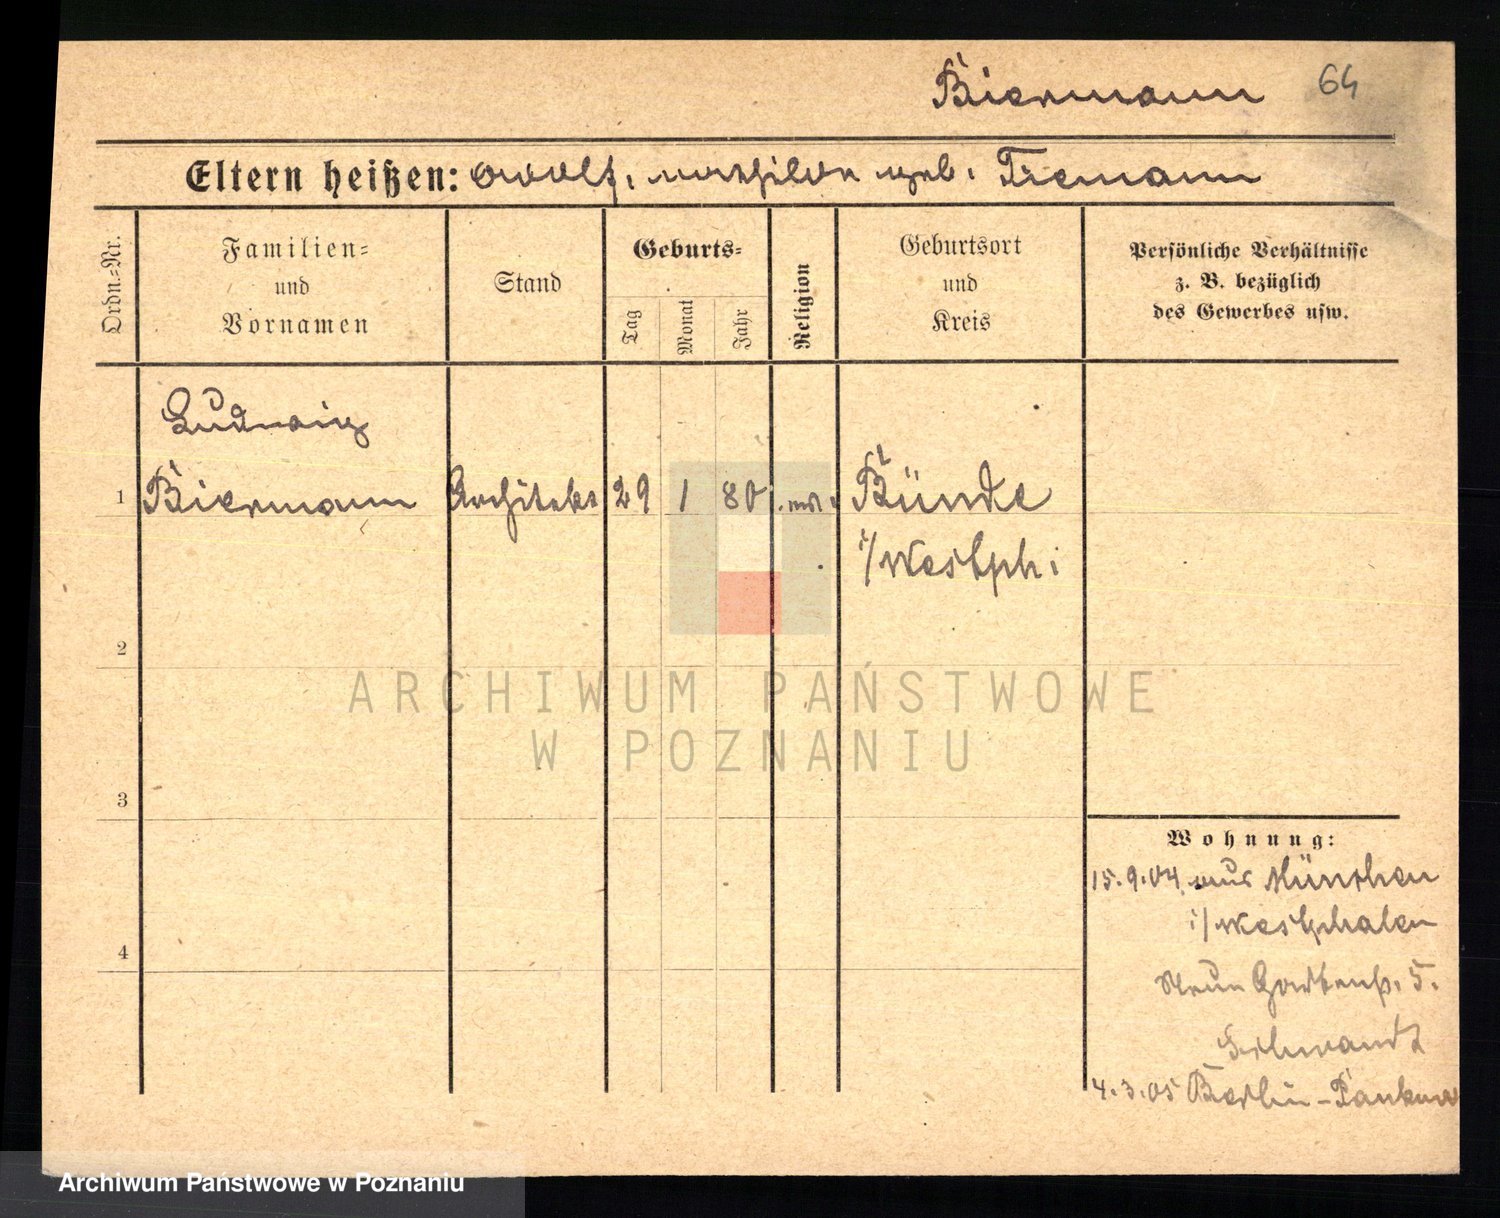 Biermann 64
Eltern heißen: Adolf, Mathilde geb. Tiemann
Ordn.-Nr.
Familien-
und
Vornamen
Stand
Geburts-
Tag
Monat
Jahr
Religion
Geburtsort
und
Kreis
Persönliche Verhältnisse
z. B. bezüglich
des Gewerbes usw.
Ludwig
1 Biermann Architekt 29 1 80 Bünde
i/Westph.
2
ARCHIWUM PAŃSTWOWE
W POZNANIU
3
4
Wohnung:
15.9.04 aus München
i/Westphalen
Neue Gartenst. 5.
4.3.05 Berlin-Pankow
Archiwum Państwowe w Poznaniu